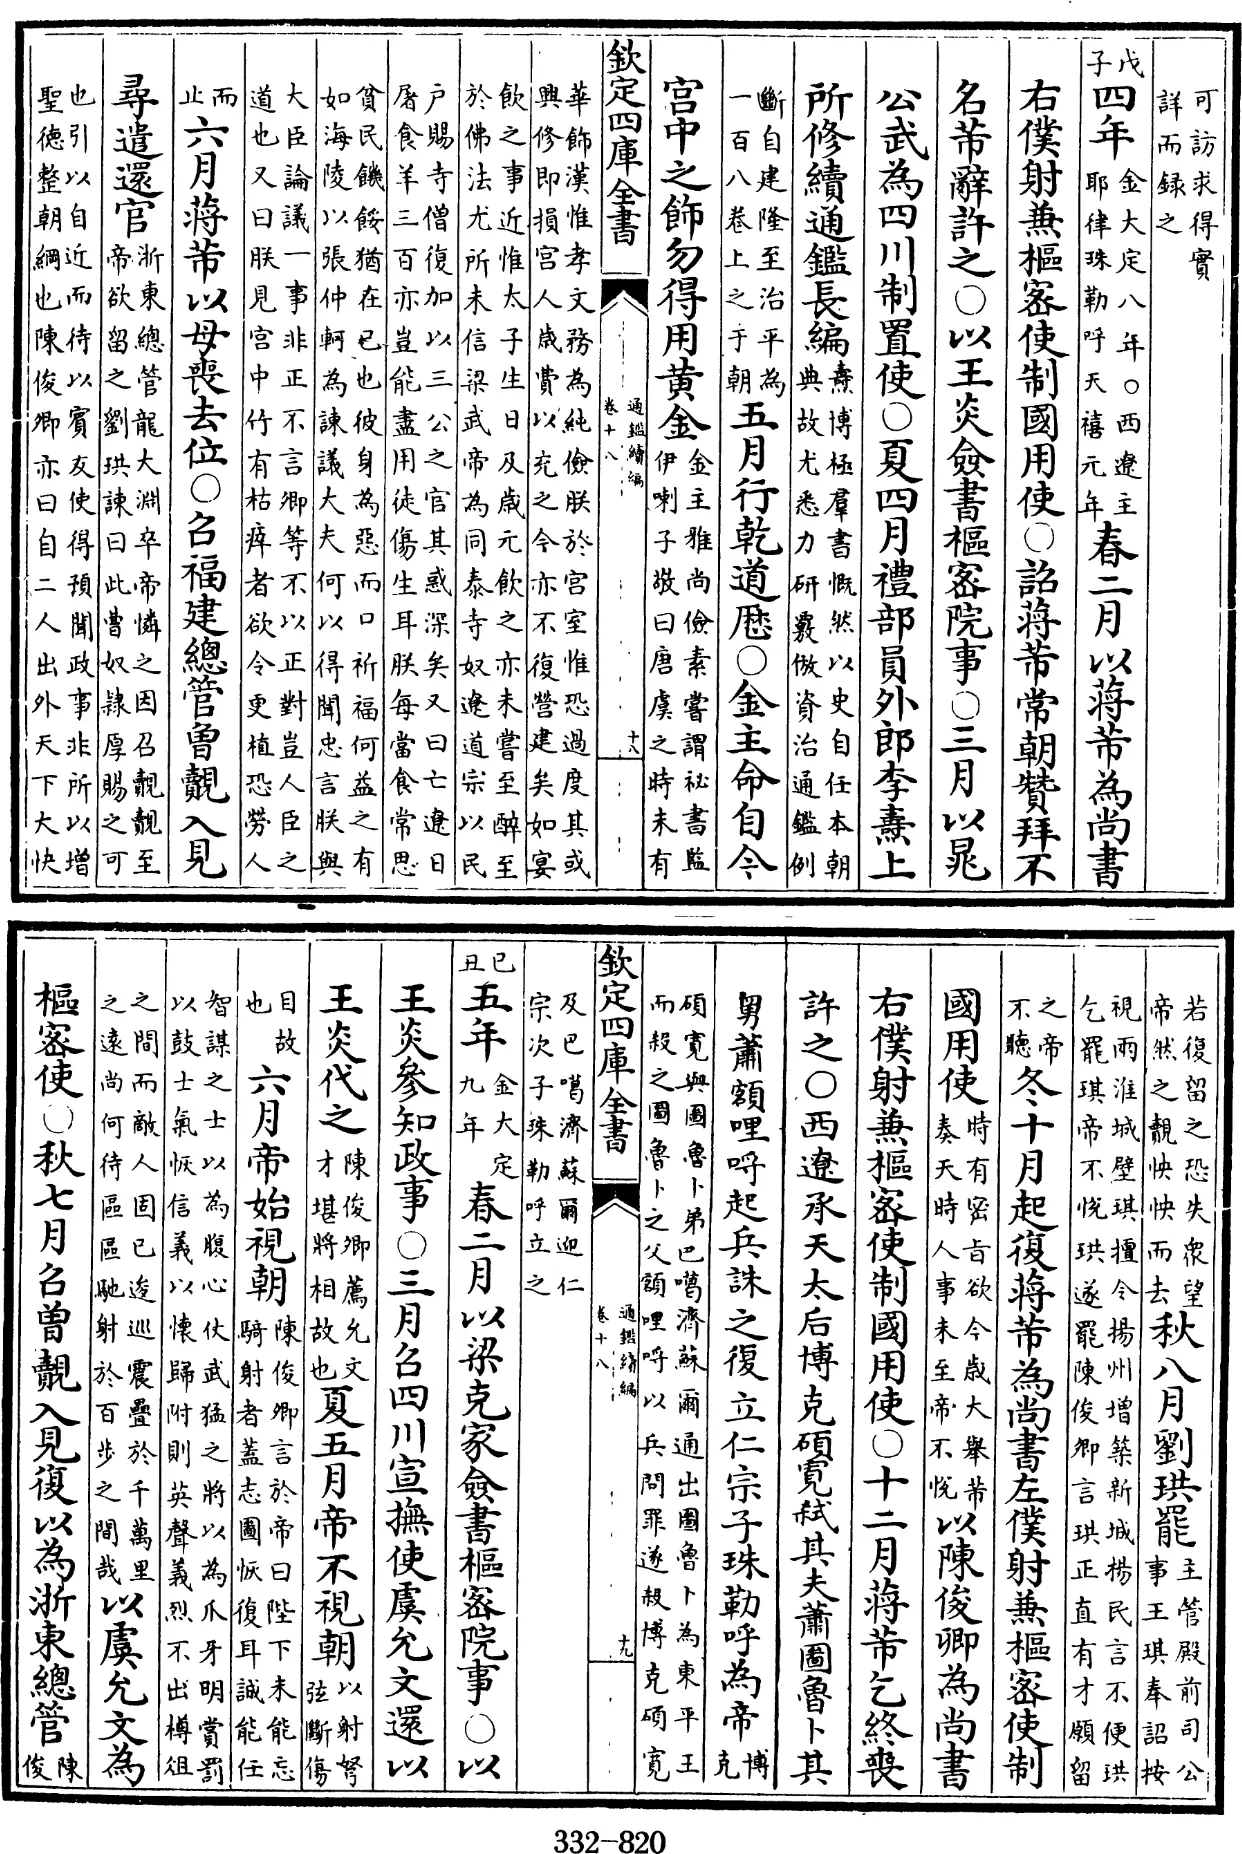 可訪求得實
詳而録之
戊子四年金大定八年○西遼主耶律珠勒呼天禧元年春二月以蔣芾為尚書
右僕射兼樞密使制國用使○詔蔣芾常朝贊拜不
名芾辭許之○以王炎僉書樞密院事○三月以晁
公武為四川制置使○夏四月禮部員外郎李燾上
所修續通鑑長編燾博極羣書慨然以史自任本朝典故尤悉力研覈倣資治通鑑例
斷自建隆至治平為一百八卷上之于朝五月行乾道厯○金主命自今
宮中之飾勿得用黄金金主雅尚儉素嘗謂祕書監伊喇子敬曰唐虞之時未有
欽定四庫全書
通鑑續編
卷十八
十八
華飾漢惟孝文務為純儉朕於宫室惟恐過度其或
興修即損宫人歳費以充之今亦不復營建矣如宴
飲之事近惟太子生日及歳元飲之亦未嘗至醉至
於佛法尤所未信梁武帝為同泰寺奴遼道宗以民
户賜寺僧復加以三公之官其惑深矣又曰亡遼日
屠食羊三百亦豈能盡用徒傷生耳朕每當食常思
貧民饑餒猶在已也彼身為惡而口祈福何益之有
如海陵以張仲軻為諫議大夫何以得聞忠言朕與
大臣論議一事非正不言卿等不以正對豈人臣之
道也又曰朕見宫中竹有枯瘁者欲令更植恐勞人
而止六月蔣芾以母喪去位○召福建總管曽覿入見
尋遣還官浙東總管龍大淵卒帝憐之因召覿覿至帝欲留之劉珙諫曰此曹奴隷厚賜之可
也引以自近而待以賓友使得預聞政事非所以增
聖德整朝綱也陳俊卿亦曰自二人出外天下大快
若復留之恐失衆望
帝然之覿怏怏而去秋八月劉珙罷主管殿前司公事王琪奉詔按
視兩淮城壁琪擅令揚州增築新城楊民言不便珙
乞罷琪帝不悦珙遂罷陳俊卿言珙正直有才願留
之帝不聽冬十月起復蔣芾為尚書左僕射兼樞密使制
國用使時有密旨欲今歳大舉芾奏天時人事未至帝不悦以陳俊卿為尚書
右僕射兼樞密使制國用使○十二月蔣芾乞終喪
許之○西遼承天太后博克碩寛弑其夫蕭圖魯卜其
舅蕭額哩呼起兵誅之復立仁宗子珠勒呼為帝博克
碩寛與圖魯卜弟巴噶濟蘇爾通出圖魯卜為東平王
而殺之圖魯卜之父額哩呼以兵問罪遂殺博克碩寛
欽定四庫全書
通鑑續編
卷十八
十九
及巴噶濟蘇爾迎仁
宗次子珠勒呼立之
已丑五年金大定九年春二月以梁克家僉書樞密院事○以
王炎參知政事○三月召四川宣撫使虞允文還以
王炎代之陳俊卿薦允文才堪將相故也夏五月帝不視朝以射弩弦斷傷
目故也六月帝始視朝陳俊卿言於帝曰陛下未能忘騎射者蓋志圖恢復耳誠能任
智謀之士以為腹心仗武猛之將以為爪牙明賞罰
以鼓士氣恢信義以懷歸附則英聲義烈不出樽俎
之間而敵人固已逡巡震疊於千萬里
之遠尚何待區區馳射於百步之間哉以虞允文為
樞密使○秋七月召曽覿入見復以為浙東總管陳俊
332-820